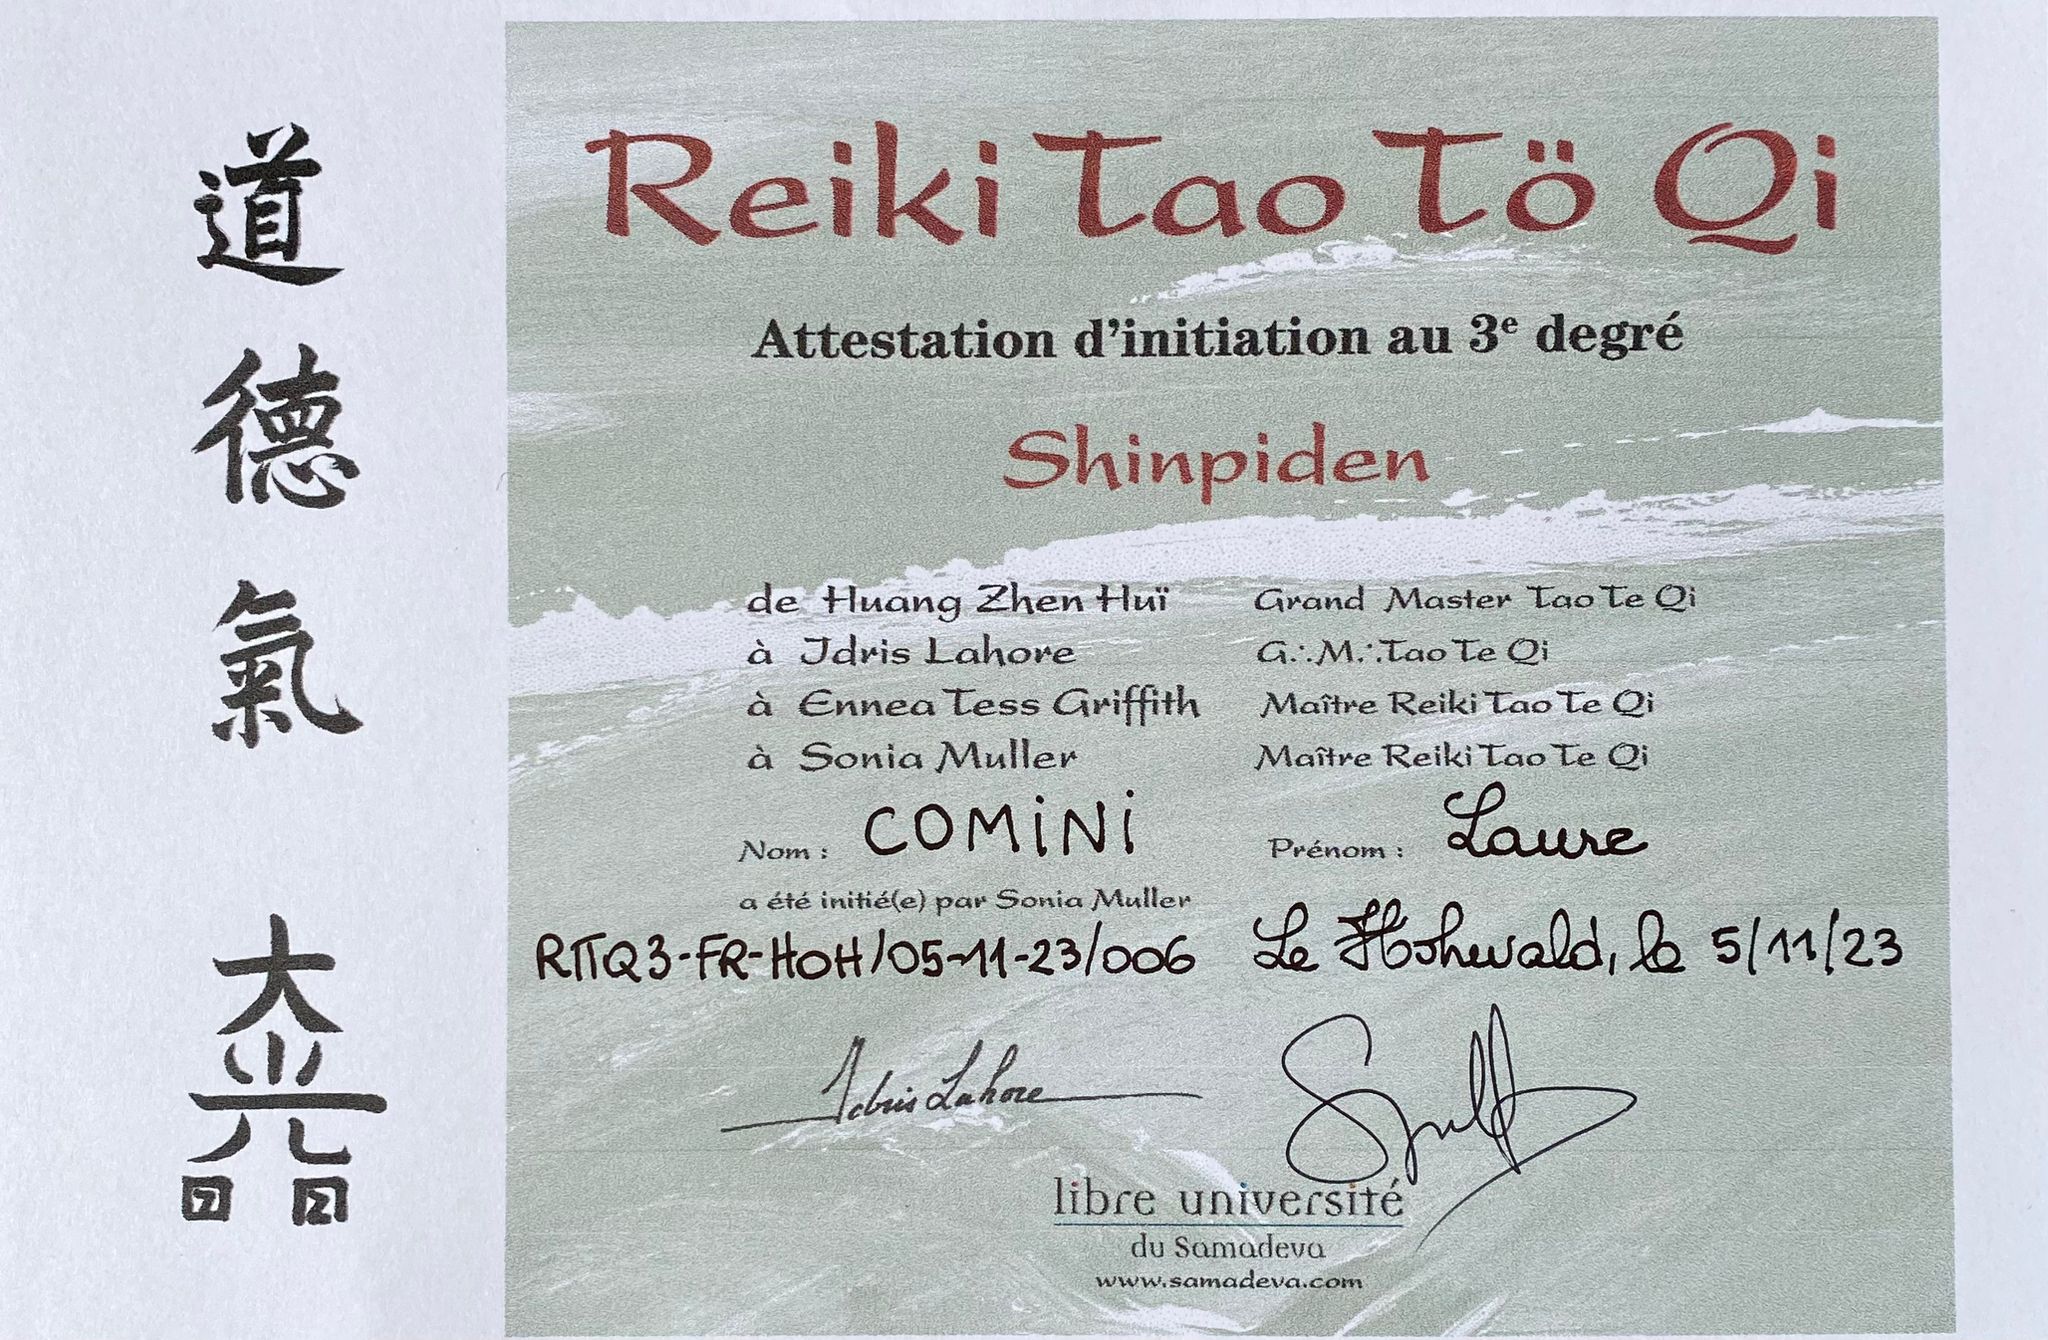 道
德
氣
大
光
Reiki Tao Tö Qi
Attestation d'initiation au 3e degré
Shinpiden
de Huang Zhen Huï Grand Master Tao Te Qi
à Idris Lahore G∴M∴Tao Te Qi
à Ennea Tess Griffith Maître Reiki Tao Te Qi
à Sonia Muller Maître Reiki Tao Te Qi
Nom : COMINI Prénom : Laure
a été initié(e) par Sonia Muller
RTTQ3-FR-HOH/05-11-23/006 Le Hohwald, le 5/11/23
Idris Lahore
libre université
du Samadeva
www.samadeva.com